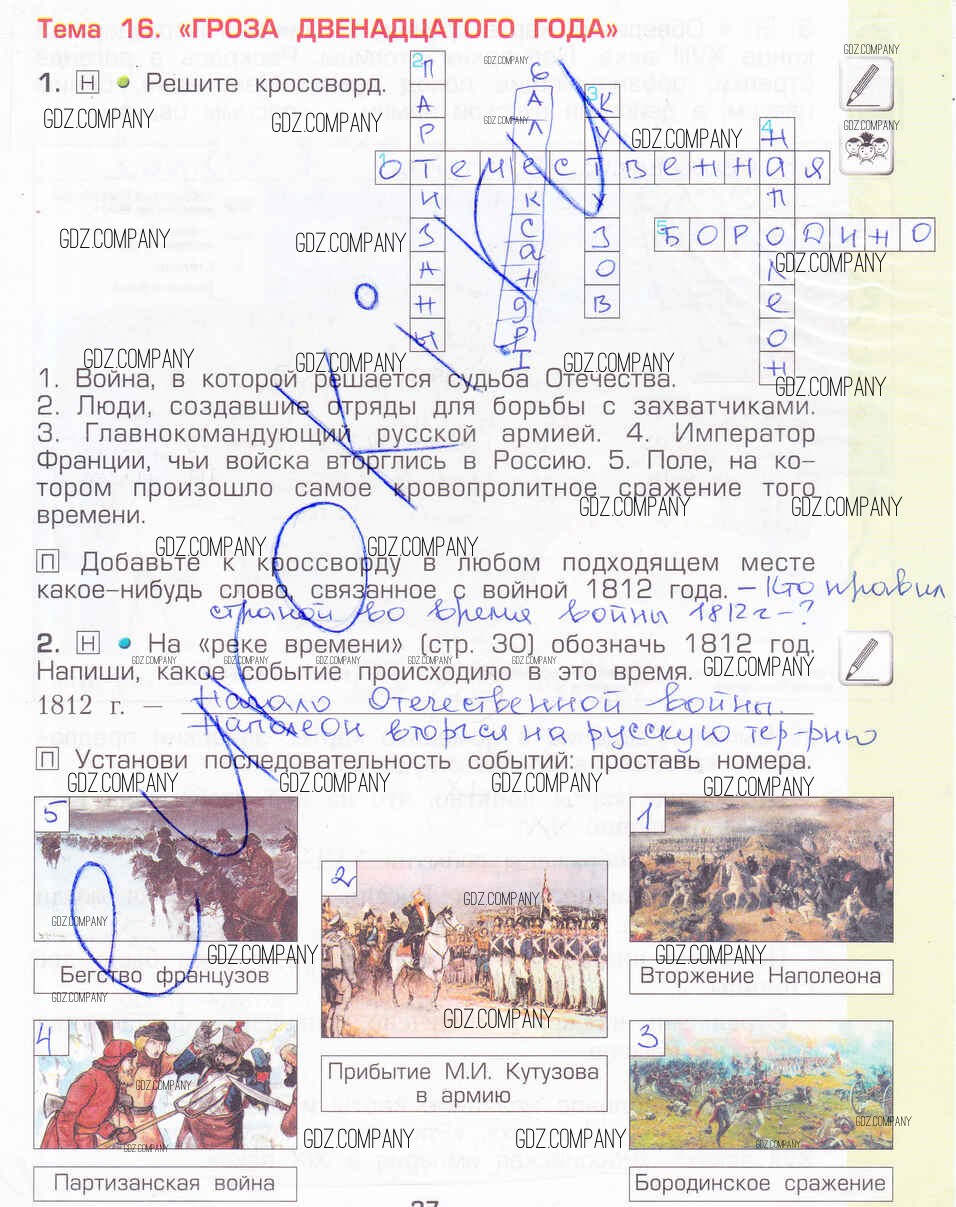 Тема 16. «ГРОЗА ДВЕНАДЦАТОГО ГОДА»
1. Н Решите кроссворд.
2 ПАРТИЗАНЫ
6 АЛЕКСАНДР I
3 КУТУЗОВ
4 НАПОЛЕОН
1 ОТЕЧЕСТВЕННАЯ
5 БОРОДИНО
1. Война, в которой решается судьба Отечества.
2. Люди, создавшие отряды для борьбы с захватчиками.
3. Главнокомандующий русской армией. 4. Император
Франции, чьи войска вторглись в Россию. 5. Поле, на ко-
тором произошло самое кровопролитное сражение того
времени.
П Добавьте к кроссворду в любом подходящем месте
какое-нибудь слово, связанное с войной 1812 года. – Кто правил
страной во время войны 1812 г-?
2. Н На «реке времени» (стр. 30) обозначь 1812 год.
Напиши, какое событие происходило в это время.
1812 г. — Начало Отечественной войны.
Наполеон вторгся на русскую тер-рию
П Установи последовательность событий: проставь номера.
5
Бегство французов
2
Прибытие М.И. Кутузова
в армию
1
Вторжение Наполеона
4
Партизанская война
3
Бородинское сражение
GDZ.COMPANY